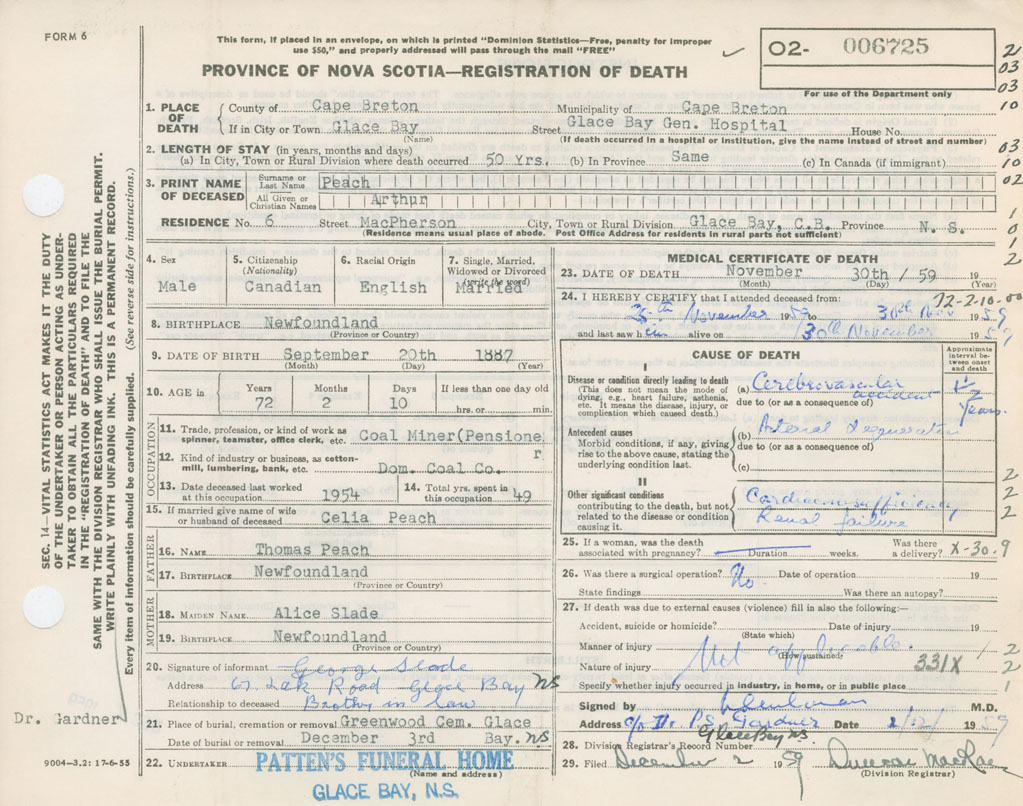 FORM 6
This form, if placed in an envelope, on which is printed "Dominion Statistics—Free, penalty for improper
use $50," and properly addressed will pass through the mail "FREE"
PROVINCE OF NOVA SCOTIA—REGISTRATION OF DEATH
O2- 006725
For use of the Department only
2
03
03
10
03
10
02
1
0
1
2
1. PLACE OF DEATH County of Cape Breton Municipality of Cape Breton
If in City or Town Glace Bay Street Glace Bay Gen. Hospital House No.
(Name) (If death occurred in a hospital or institution, give the name instead of street and number)
2. LENGTH OF STAY (in years, months and days)
(a) In City, Town or Rural Division where death occurred 50 Yrs. (b) In Province Same (c) In Canada (if immigrant)
3. PRINT NAME OF DECEASED Surname or Last Name Peach
All Given or Christian Names Arthur
RESIDENCE No. 6 Street MacPherson City, Town or Rural Division Glace Bay, C.B. Province N. S.
(Residence means usual place of abode. Post Office Address for residents in rural parts not sufficient)
4. Sex
Male
5. Citizenship
(Nationality)
Canadian
6. Racial Origin
English
7. Single, Married,
Widowed or Divorced
(write the word)
Married
8. BIRTHPLACE Newfoundland
(Province or Country)
9. DATE OF BIRTH September 20th 1887
(Month) (Day) (Year)
10. AGE in Years Months Days If less than one day old
72 2 10 hrs. or min.
OCCUPATION
11. Trade, profession, or kind of work as
spinner, teamster, office clerk, etc. Coal Miner(Pensioner
12. Kind of industry or business, as cotton-
mill, lumbering, bank, etc. Dom. Coal Co.
13. Date deceased last worked
at this occupation 1954
14. Total yrs. spent in
this occupation 49
15. If married give name of wife
or husband of deceased Celia Peach
FATHER
16. NAME Thomas Peach
17. BIRTHPLACE Newfoundland
(Province or Country)
MOTHER
18. MAIDEN NAME Alice Slade
19. BIRTHPLACE Newfoundland
(Province or Country)
20. Signature of informant George Slade
Address Road Glace Bay NS
Relationship to deceased Brother in law
21. Place of burial, cremation or removal Greenwood Cem. Glace
Date of burial or removal December 3rd Bay. NS
22. UNDERTAKER PATTEN'S FUNERAL HOME
(Name and address)
GLACE BAY, N.S.
9004—3.2: 17-6-55
Dr. Gardner
MEDICAL CERTIFICATE OF DEATH
23. DATE OF DEATH November 30th / 59 19
(Month) (Day) (Year)
72-2-10-00
24. I HEREBY CERTIFY that I attended deceased from:
November 1959 to 30th Nov 1959
and last saw him alive on 30th November 1959
CAUSE OF DEATH
Approximate
interval be-
tween onset
and death
I
Disease or condition directly leading to death
(This does not mean the mode of
dying, e.g., heart failure, asthenia,
etc. It means the disease, injury, or
complication which caused death.)
(a) Cerebrovascular accident
years.
due to (or as a consequence of)
Antecedent causes
Morbid conditions, if any, giving
rise to the above cause, stating the
underlying condition last.
(b) Arterial degeneration
due to (or as a consequence of)
(c)
II
Other significant conditions
contributing to the death, but not
related to the disease or condition
causing it.
Cardiac insufficiency
Renal failure
2
2
2
25. If a woman, was the death
associated with pregnancy? Duration weeks. Was there
a delivery? X-30.9
26. Was there a surgical operation? No Date of operation 19
State findings Was there an autopsy?
27. If death was due to external causes (violence) fill in also the following:—
Accident, suicide or homicide? Date of injury 19
(State which)
Manner of injury Not applicable.
(How sustained)
Nature of injury 331X
2
2
1
Specify whether injury occurred in industry, in home, or in public place
Signed by M.D.
Address c/o Dr P.S. Gardner Date 2/12/ 1959
Glace Bay NS
28. Division Registrar's Record Number
29. Filed December 2 1959 Duncan MacRae
(Division Registrar)
SEC. 14—VITAL STATISTICS ACT MAKES IT THE DUTY
OF THE UNDERTAKER OR PERSON ACTING AS UNDER-
TAKER TO OBTAIN ALL THE PARTICULARS REQUIRED
IN THE "REGISTRATION OF DEATH" AND TO FILE THE
SAME WITH THE DIVISION REGISTRAR WHO SHALL ISSUE THE BURIAL PERMIT.
WRITE PLAINLY WITH UNFADING INK. THIS IS A PERMANENT RECORD.
Every item of information should be carefully supplied. (See reverse side for instructions.)